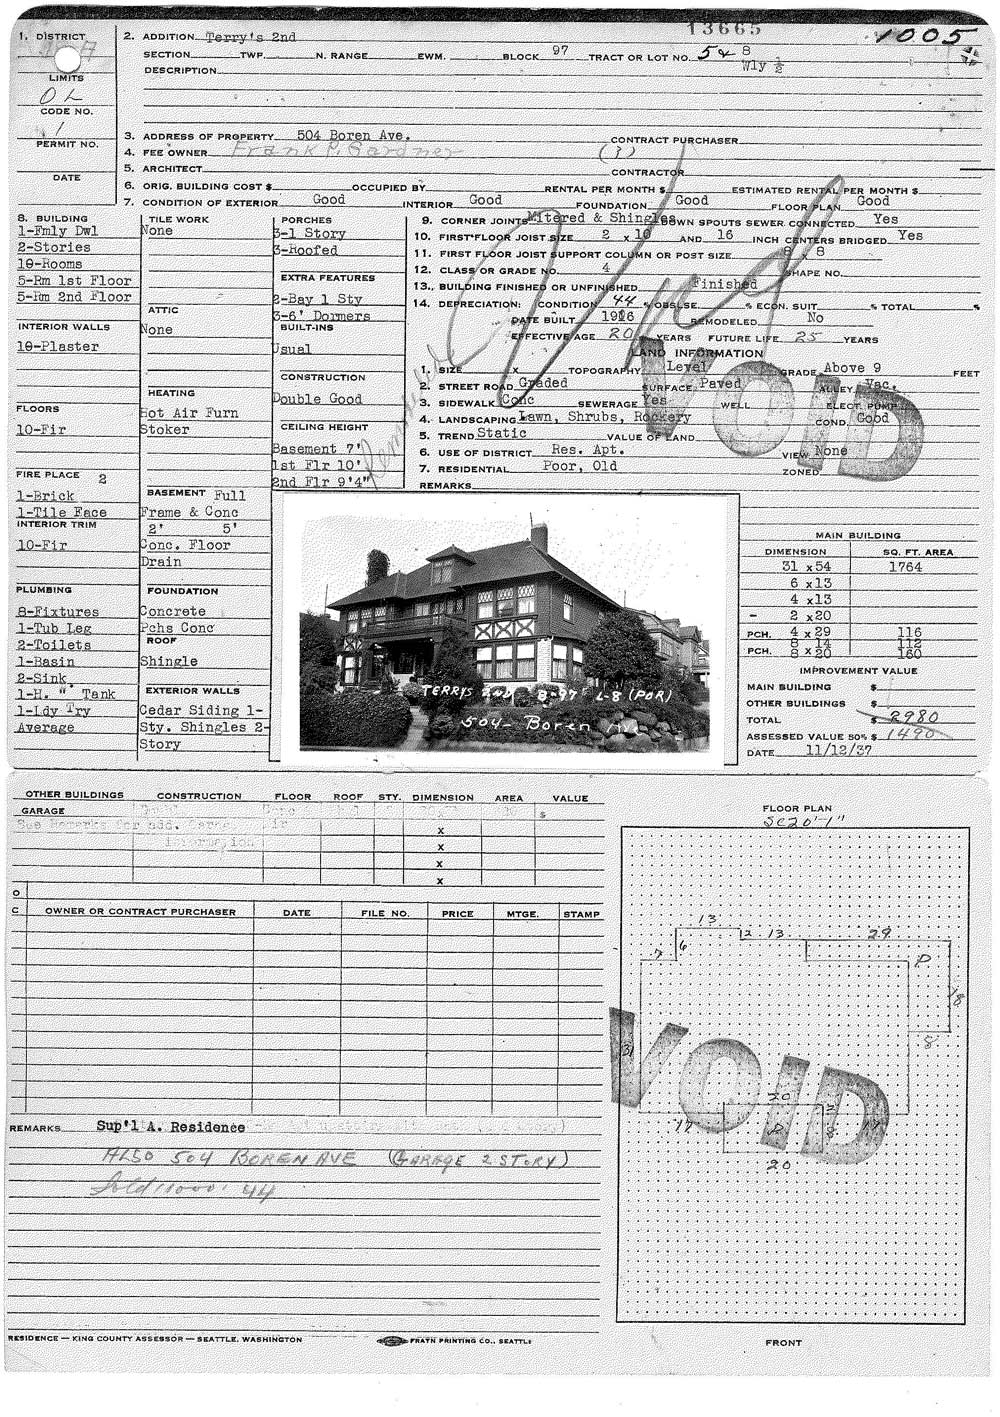 13665
1005
1. DISTRICT
LIMITS
OL
CODE NO.
1
PERMIT NO.
DATE
2. ADDITION Terry's 2nd
SECTION TWP. N. RANGE EWM. BLOCK 97 TRACT OR LOT NO. 5 & 8
Wly ½
DESCRIPTION
3. ADDRESS OF PROPERTY 504 Boren Ave. CONTRACT PURCHASER
4. FEE OWNER Frank P. Gardner (1)
5. ARCHITECT CONTRACTOR
6. ORIG. BUILDING COST $ OCCUPIED BY RENTAL PER MONTH $ ESTIMATED RENTAL PER MONTH $
7. CONDITION OF EXTERIOR Good INTERIOR Good FOUNDATION Good FLOOR PLAN Good
8. BUILDING
1-Fmly Dwl
2-Stories
10-Rooms
5-Rm 1st Floor
5-Rm 2nd Floor
INTERIOR WALLS
10-Plaster
FLOORS
10-Fir
FIRE PLACE 2
1-Brick
1-Tile Face
INTERIOR TRIM
10-Fir
PLUMBING
8-Fixtures
1-Tub Leg
2-Toilets
1-Basin
2-Sink
1-H. " Tank
1-Ldy Try
Average
TILE WORK
None
ATTIC
None
HEATING
Hot Air Furn
Stoker
BASEMENT Full
Frame & Conc
2' 5'
Conc. Floor
Drain
FOUNDATION
Concrete
Pchs Conc
ROOF
Shingle
EXTERIOR WALLS
Cedar Siding 1-
Sty. Shingles 2-
Story
PORCHES
3-1 Story
3-Roofed
EXTRA FEATURES
2-Bay 1 Sty
3-6' Dormers
BUILT-INS
Usual
CONSTRUCTION
Double Good
CEILING HEIGHT
Basement 7'
1st Flr 10'
2nd Flr 9'4"
9. CORNER JOINTS Mitered & Shingles DOWN SPOUTS SEWER CONNECTED Yes
10. FIRST FLOOR JOIST SIZE 2 x 10 AND 16 INCH CENTERS BRIDGED Yes
11. FIRST FLOOR JOIST SUPPORT COLUMN OR POST SIZE 8 x 8
12. CLASS OR GRADE NO. 4 SHAPE NO.
13. BUILDING FINISHED OR UNFINISHED Finished
14. DEPRECIATION: CONDITION 44 % OBSLSE. % ECON. SUIT. % TOTAL %
DATE BUILT 1916 REMODELED No
EFFECTIVE AGE 20 YEARS FUTURE LIFE 25 YEARS
Void
VOID
LAND INFORMATION
1. SIZE x TOPOGRAPHY Level GRADE Above 9 FEET
2. STREET ROAD Graded SURFACE Paved ALLEY Vac.
3. SIDEWALK Conc SEWERAGE Yes WELL ELECT. PUMP
4. LANDSCAPING Lawn, Shrubs, Rockery COND. Good
5. TREND Static VALUE OF LAND
6. USE OF DISTRICT Res. Apt. VIEW None
7. RESIDENTIAL Poor, Old ZONED
REMARKS
TERRYS 2ND B-97 L-8 (POR)
504- Boren Ave
MAIN BUILDING
DIMENSION SQ. FT. AREA
31 x 54 1764
6 x 13
4 x 13
- 2 x 20
PCH. 4 x 29 116
8 14 112
PCH. 8 x 20 160
IMPROVEMENT VALUE
MAIN BUILDING $
OTHER BUILDINGS $
TOTAL $ 2980
ASSESSED VALUE 50% $ 1490
DATE 11/12/37
OTHER BUILDINGS CONSTRUCTION FLOOR ROOF STY. DIMENSION AREA VALUE
GARAGE $
See Remarks for add. Garage
information
x
x
x
x
O
C OWNER OR CONTRACT PURCHASER DATE FILE NO. PRICE MTGE. STAMP
REMARKS Sup'l A. Residence
ALSO 504 BOREN AVE (GARAGE 2 STORY)
Sold 11000 '44
FLOOR PLAN
SC 20'-1"
13
2 13 29
7 6 P
18
8
31
VOID
20
2
17 P 8 17
20
FRONT
RESIDENCE — KING COUNTY ASSESSOR — SEATTLE, WASHINGTON
FRAYN PRINTING CO., SEATTLE